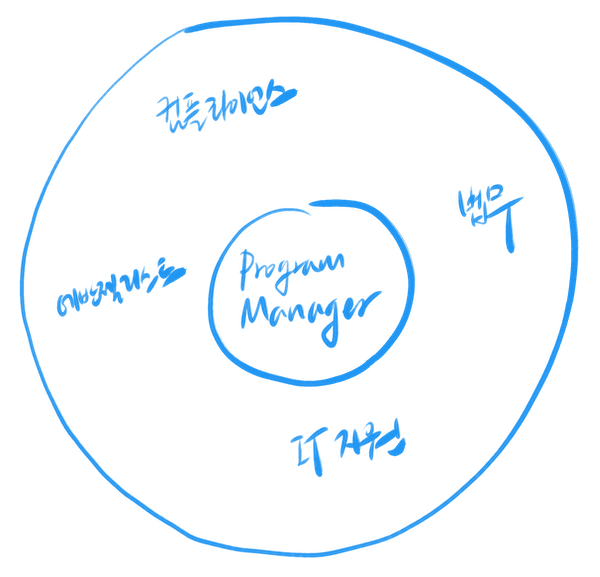 컴플라이언스
법무
에반젤리스트
Program
Manager
IT 지원